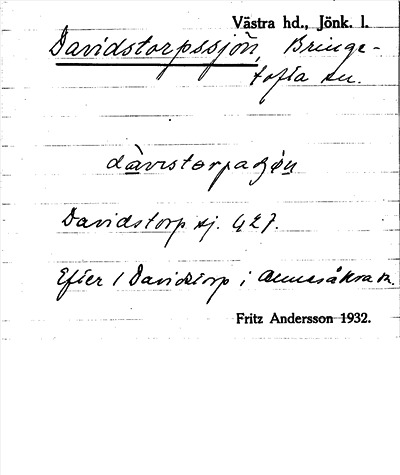 Västra hd., Jönk. l.
Davidstorpssjön, Bringe-
tofta sn.
Davidstorp sj. G 27.
Efter 1 Davidstorp i Annesåkra sn.
Fritz Andersson 1932.